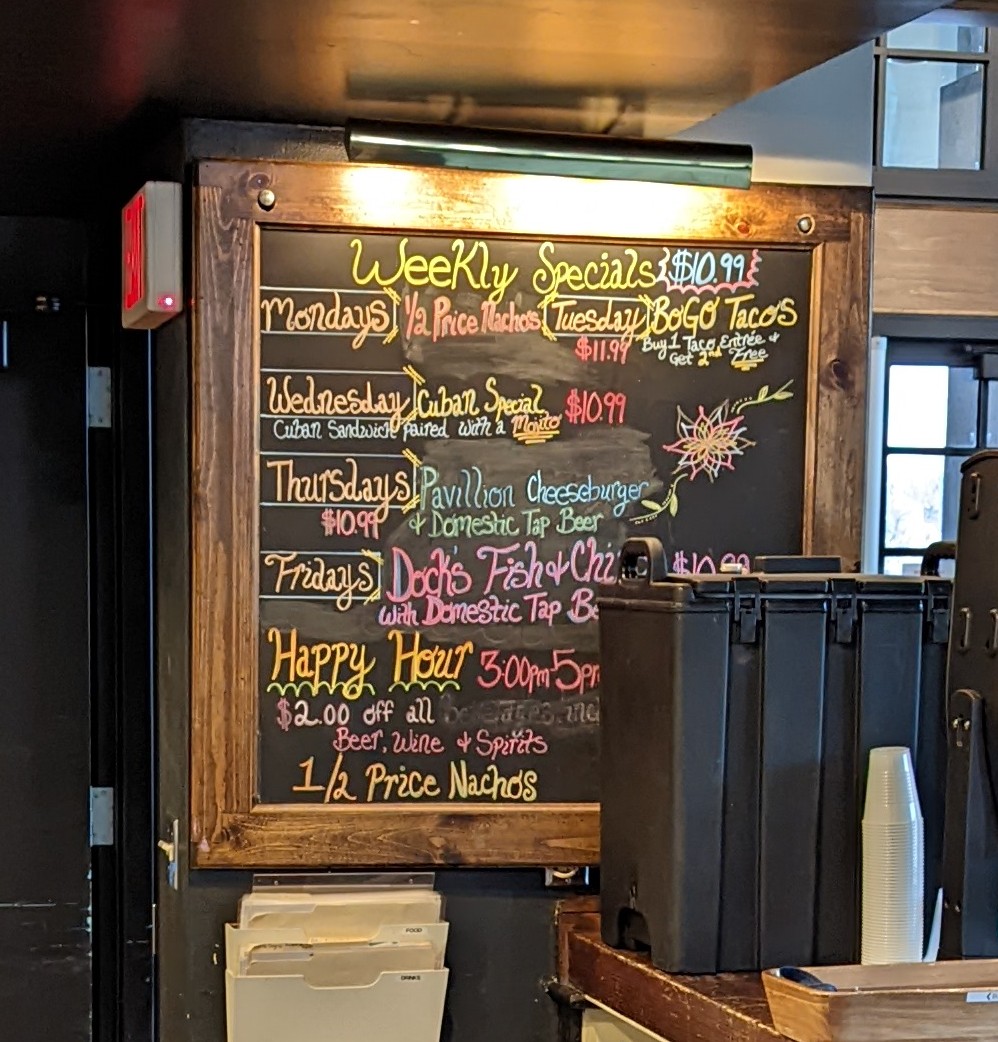 Weekly Specials $10.99
Mondays 1/2 Price Nachos Tuesday BoGO Tacos
$11.99 Buy 1 Taco Entrée &
Get 2nd Free
Wednesday Cuban Special $10.99
Cuban Sandwich paired with a Mojito
Thursdays Pavillion Cheeseburger
$10.99 & Domestic Tap Beer
Fridays Dock's Fish & Chi
with Domestic Tap Be
Happy Hour 3:00pm-5pm
$2.00 off all
Beer, Wine & Spirits
1/2 Price Nachos
FOOD
DRINKS